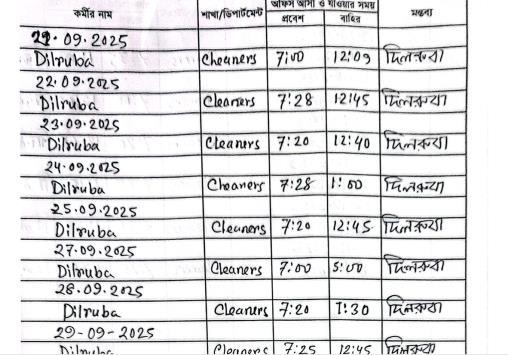 কর্মীর নাম শাখা/ডিপার্টমেন্ট অফিস আসা ও যাওয়ার সময় মন্তব্য
প্রবেশ বাহির
21.09.2025
Dilruba Cheaners 7:00 12:09 দিলরুবা
22.09.2025
Dilruba Cleaners 7:28 12:45 দিলরুবা
23.09.2025
Dilruba Cleaners 7:20 12:40 দিলরুবা
24.09.2025
Dilruba Cheaners 7:28 1:00 দিলরুবা
25.09.2025
Dilruba Cleaners 7:20 12:45 দিলরুবা
27.09.2025
Dilruba Cleaners 7:00 5:00 দিলরুবা
28.09.2025
Dilruba Cleaners 7:20 1:30 দিলরুবা
29-09-2025
Dilruba Cleaners 7:25 12:45 দিলরুবা